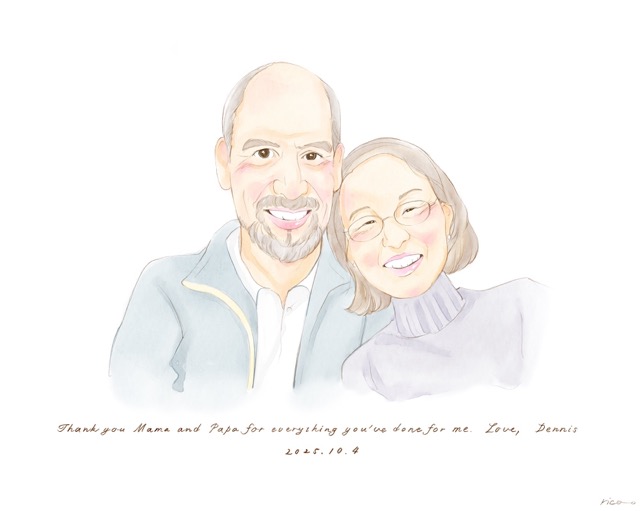 Thank you Mama and Papa for everything you've done for me. Love, Dennis
2025.10.4
rico